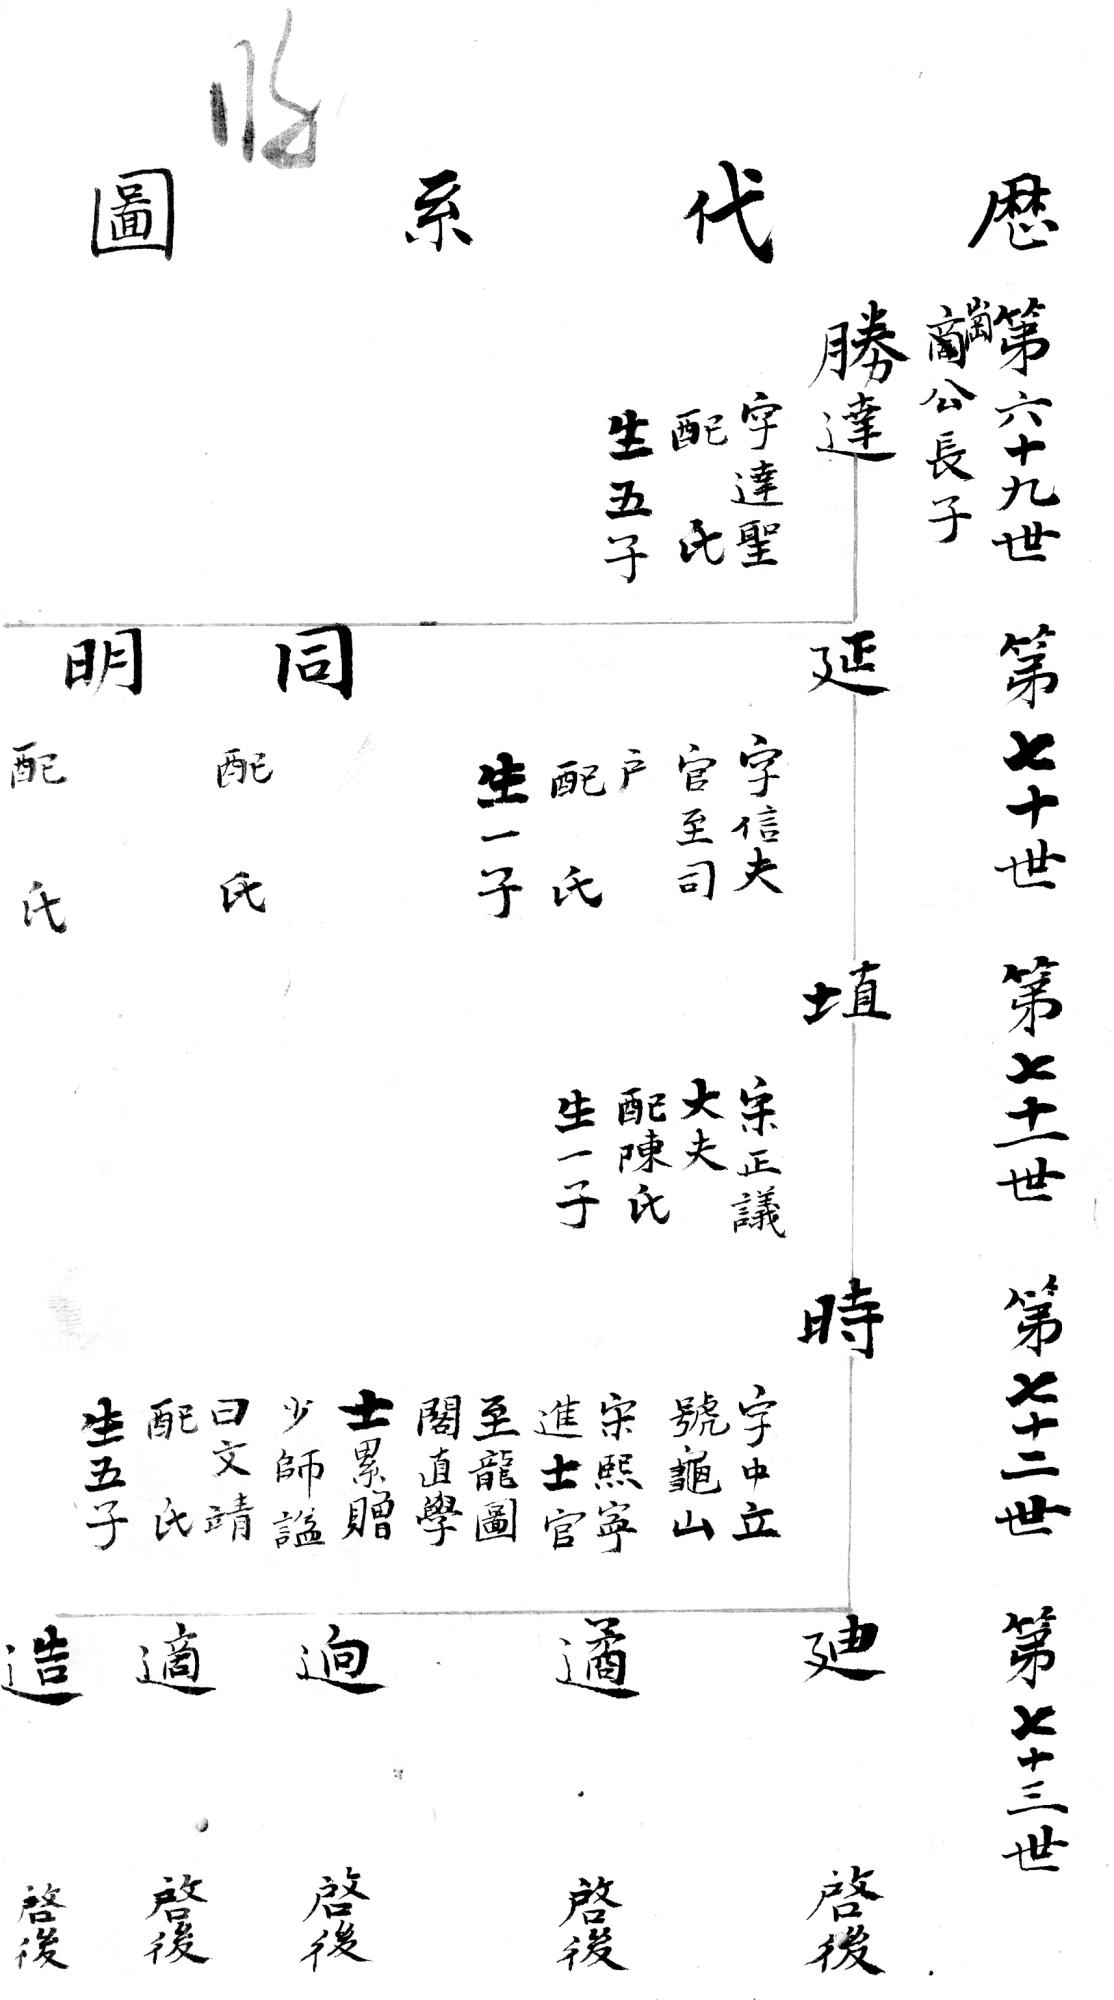 歷代系圖
第六十九世
崗
啇公長子
勝達
字達聖
配　氏
生五子
第七十世
延
字信夫
官至司
户
配　氏
生一子
同
配　氏
明
配　氏
第七十一世
埴
宋正議
大夫
配陳氏
生一子
第七十二世
時
字中立
號龜山
宋熙寧
進士官
至龍圖
閣直學
士累贈
少師謚
曰文靖
配　氏
生五子
第七十三世
迪
啓後
遹
啓後
逈
啓後
適
啓後
造
啓後